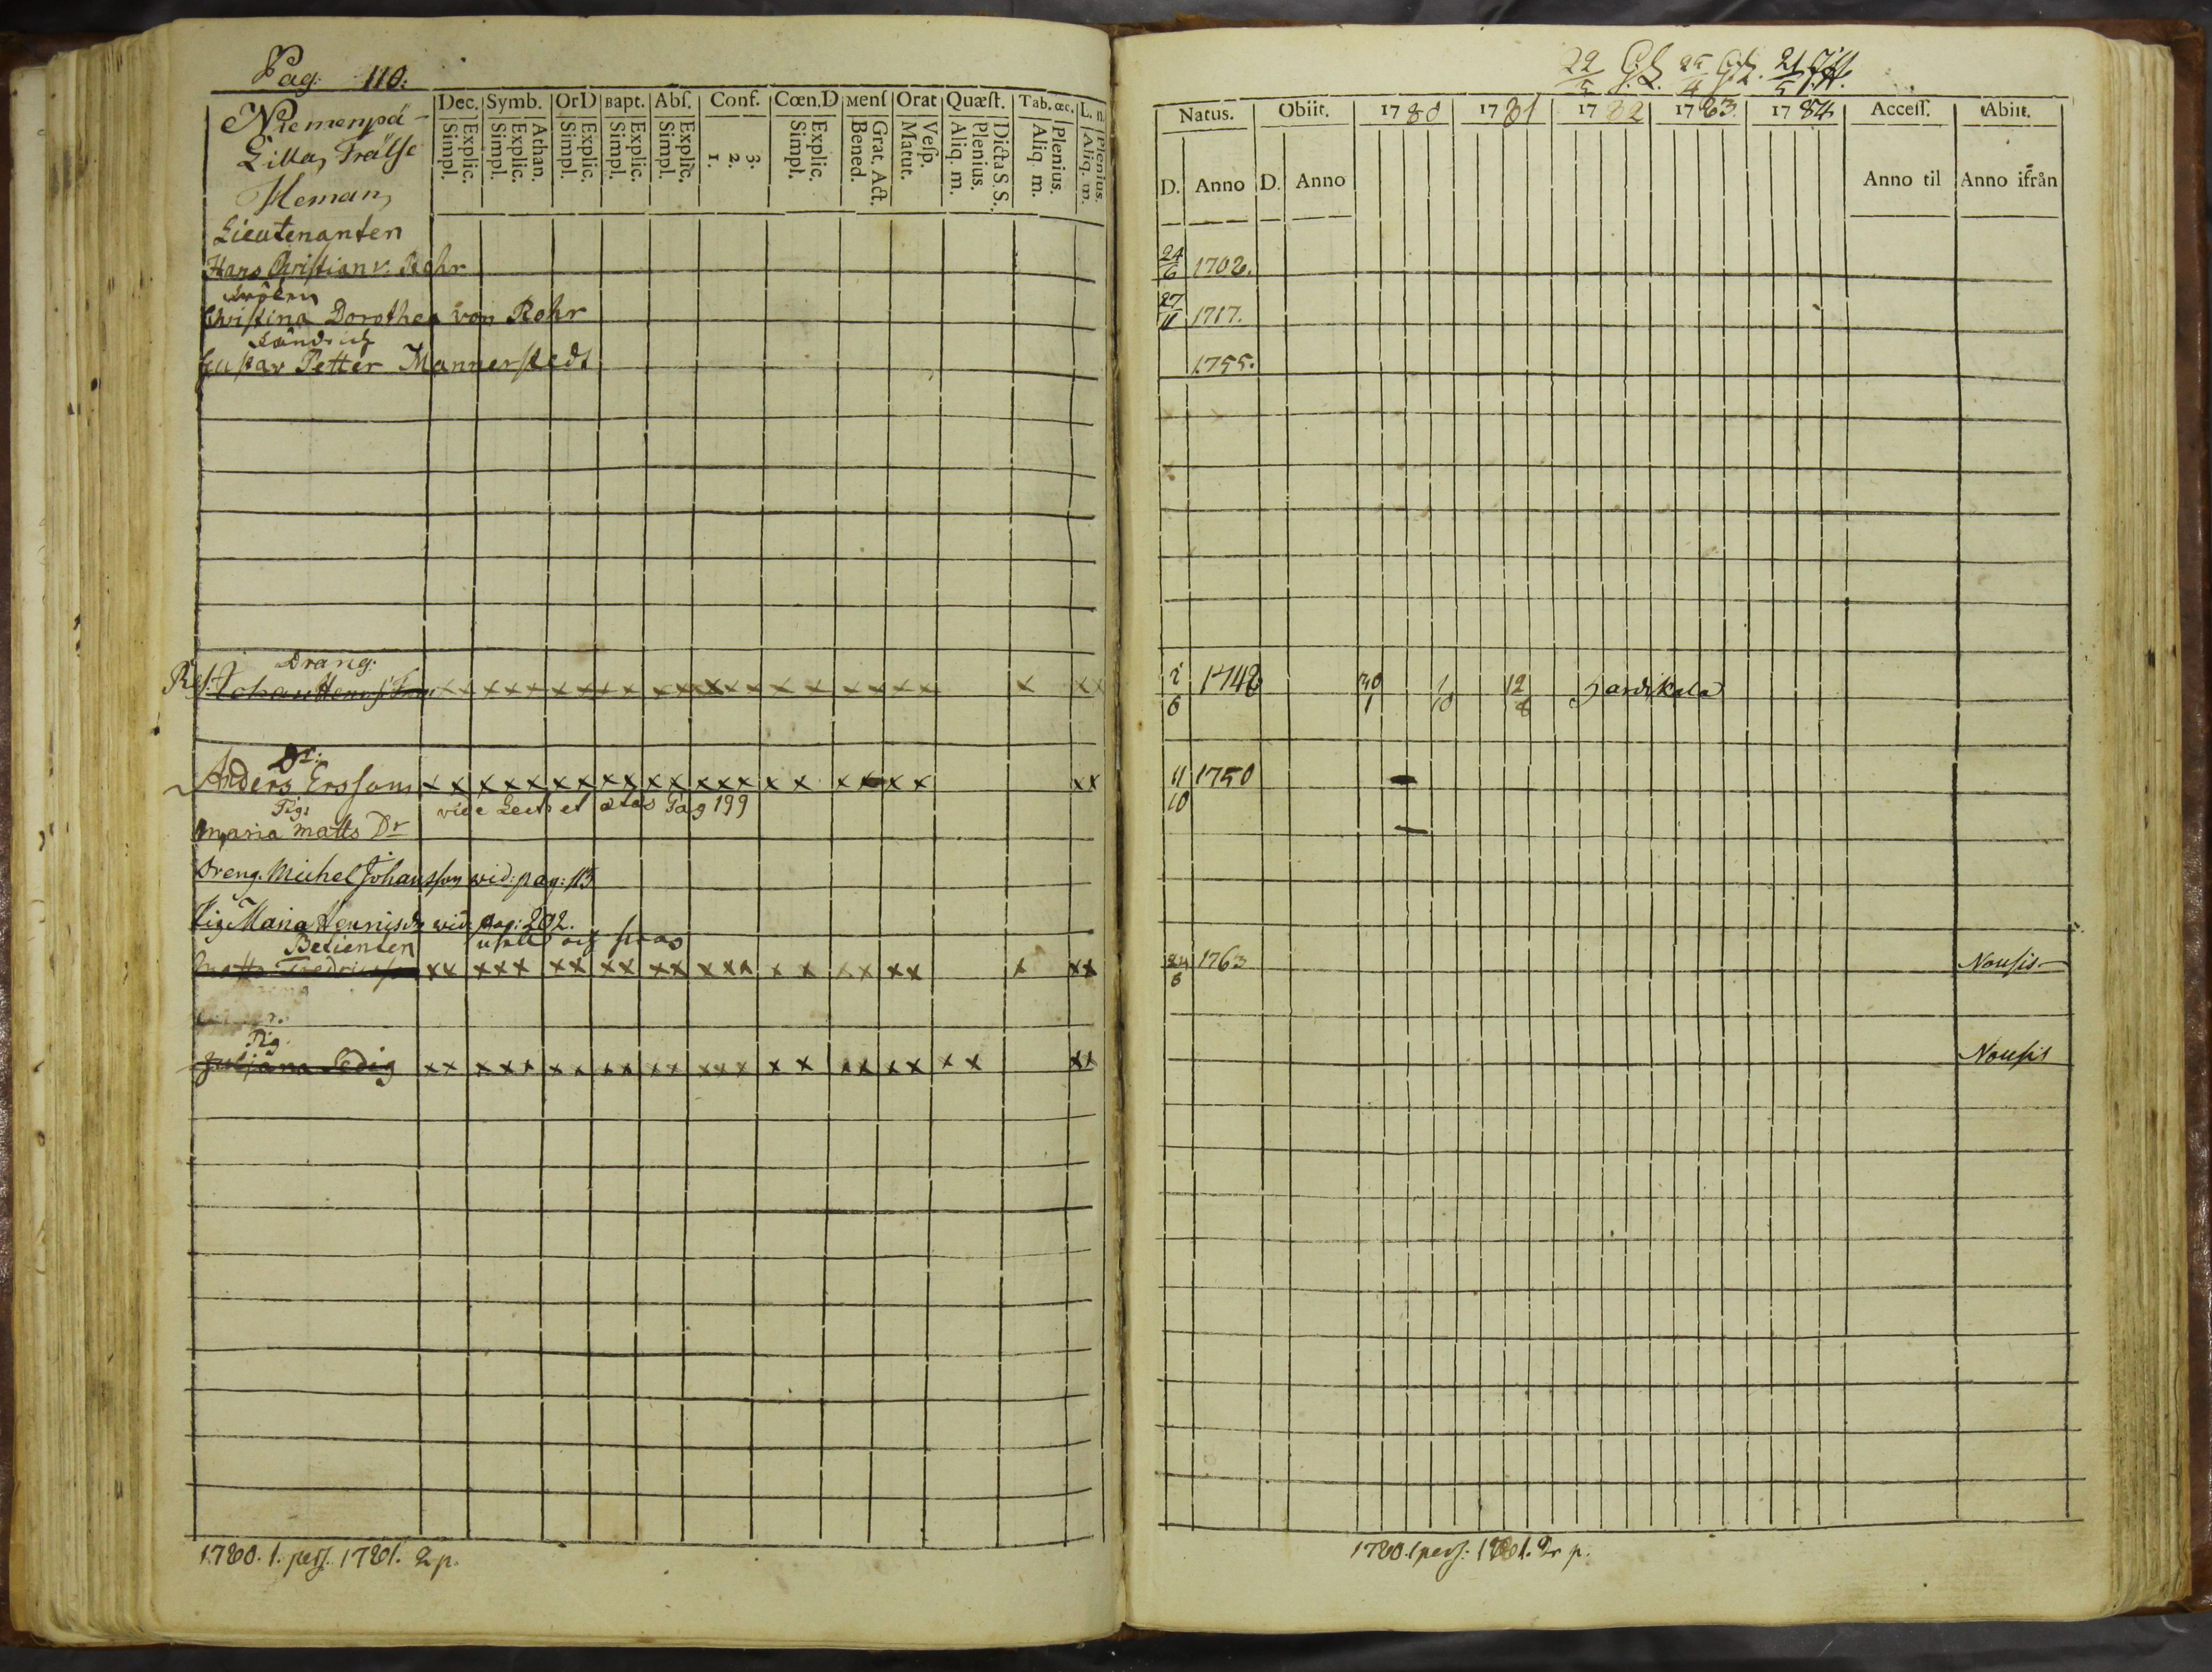 Pag: 110:
Niemenpä-
Lilla, Frälse
Heman,
Dec. Symb. OrD Bapt. Abſ. Conf. Cœn.D Menſ Orat Quæſt. Tab. œc. L. n.
Simpl. Explic. Simpl. Explic. Athan. Simpl. Explic. Simpl. Explic. Simpl. Explic. 1. 2. 3. Simpl. Explic. Bened. Grat. Act. Matut. Veſp. Aliq. m. Plenius. Dicta S. S. Aliq. m. Plenius. Aliq. m. Plenius.
Lieutenanten
Hans Christian v. Rohr
Fröken
Christina Dorothea von Rohr
Gustav Petter Mannerstedt
Drang:
x x x x x x x x x x x x x x x x x x x x x x x
Dr:
Anders Ersson x x x x x x x x x x x x x x x x x x x x
Pig:
vide Lect: et ætas Pag 199
Maria Matts Dr
Dreng. Michel Johansson wid: pag: 113
Pig Maria Hennisdr wid: pag: 202.
Betienten
xx xxx xx xx xx xxx x x xx xx x xx
Pig.
Juliana Sedig xx xxx xx xx xx xxx x x xx xx x x xx
1780. 1. pers. 1781. 2 p.
22/5 G.L. 25/4 G.L. 21/5
Natus. Obiit. 1780 1781 1782 1783. 1784 Acceſſ. Abiit.
D. Anno D. Anno Anno til Anno ifrån
24/6 1702.
27/11 1717.
1755.
2/6 1748 30/1 1/10 12/8
11/10 1750
24/8 1763 Nousis
Nousis
1780. 1 pers: 1781. 2 p.